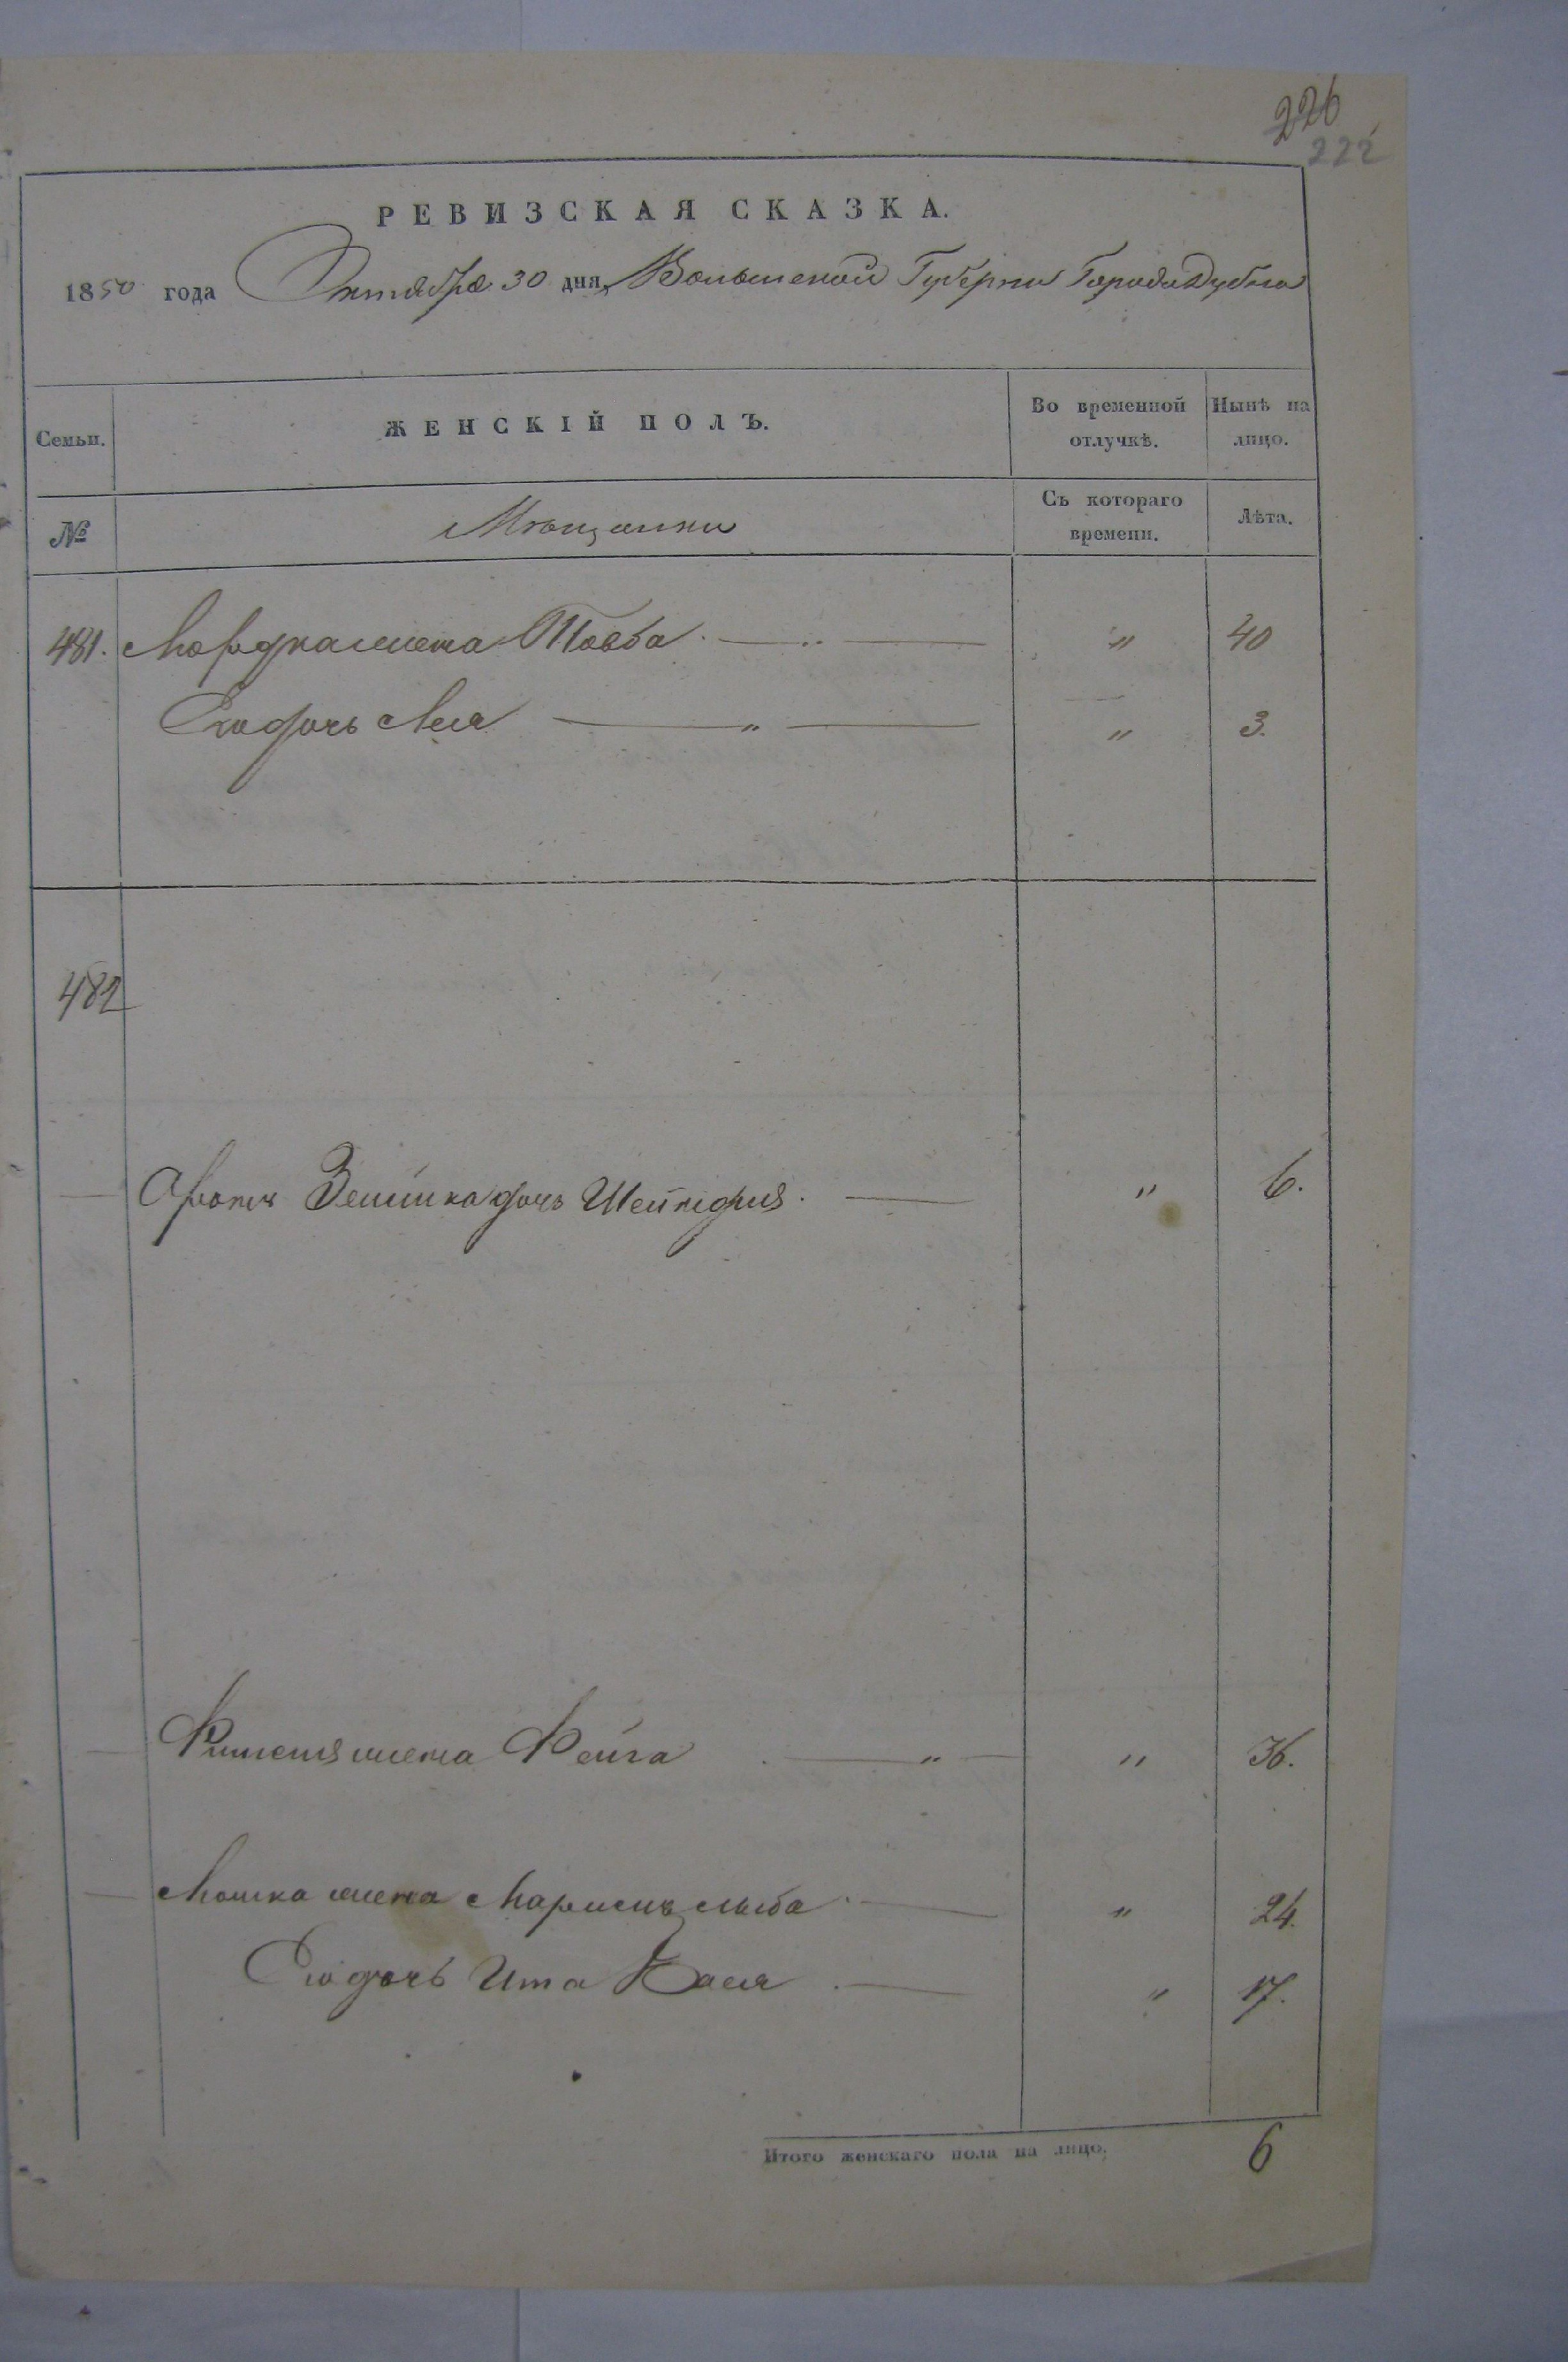 226
222
РЕВИЗСКАЯ СКАЗКА.
1850 года Октября 30 дня, Волынской Губернии Города Дубно
Семьи.
ЖЕНСКІЙ ПОЛЪ.
Во временной отлучкѣ.
Нынѣ на лицо.
№
Мѣщанки
Съ котораго времени.
Лѣта.
481. Мордка жена Товба " 40
Его дочь Лея " 3.
482
Зелика дочь Шейндля " 6.
жена Фейга " 36.
Мошка жена " 24.
Его дочь Ита Бася " 17.
Итого женскаго пола на лицо. 6